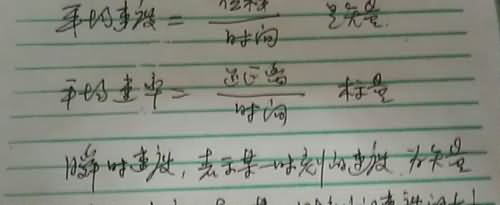 平均速度 = 位移/时间 是矢量.
平均速率 = 时间 标量
瞬时速度, 表示某一时刻的速度 为矢量